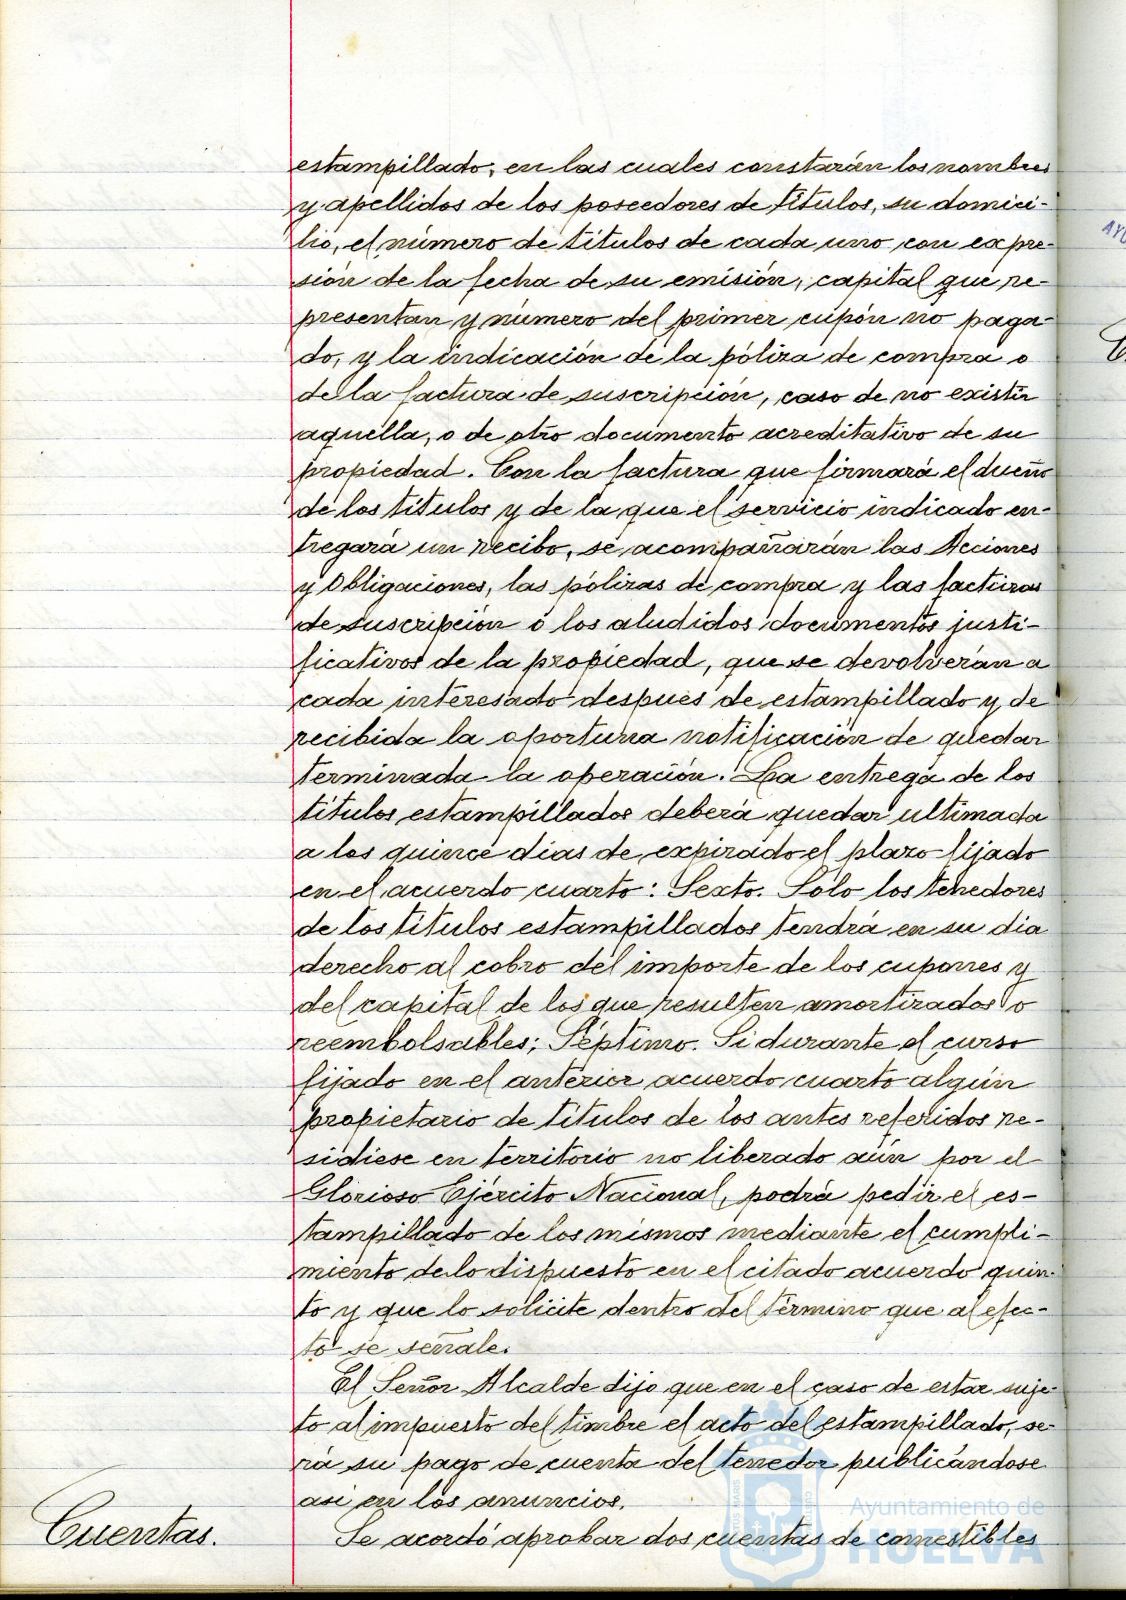 estampillado, en las cuales constarán los nombres
y apellidos de los poseedores de títulos, su domici-
lio, el número de títulos de cada uno con expre-
sión de la fecha de su emisión, capital que re-
presentan y número del primer cupón no paga-
do, y la indicación de la póliza de compra o
de la factura de suscripción, caso de no existir
aquella, o de otro documento acreditativo de su
propiedad. Con la factura que firmará el dueño
de los títulos y de la que el servicio indicado en-
tregará un recibo, se acompañarán las Acciones
y Obligaciones, las pólizas de compra y las facturas
de suscripción ó los aludidos documentos justi-
ficativos de la propiedad, que se devolverán a
cada interesado después de estampillado y de
recibida la oportuna notificación de quedar
terminada la operación. La entrega de los
títulos estampillados deberá quedar ultimada
a los quince días de expirado el plazo fijado
en el acuerdo cuarto: Sexto. Sólo los tenedores
de los títulos estampillados tendrá en su día
derecho al cobro del importe de los cupones y
del capital de los que resulten amortizados o
reembolsables; Séptimo. Si durante el curso
fijado en el anterior acuerdo cuarto algún
propietario de títulos de los antes referidos re-
sidiese en territorio no liberado aún por el
Glorioso Ejército Nacional, podrá pedir el es-
tampillado de los mismos mediante el cumpli-
miento de lo dispuesto en el citado acuerdo quin-
to y que lo solicite dentro del término que al efec-
to se señale.
El Señor Alcalde dijo que en el caso de estar suje-
to al impuesto del timbre el acto del estampillado, se-
rá su pago de cuenta del tenedor publicándose
así en los anuncios.
Cuentas.
Se acordó aprobar dos cuentas de comestibles
Ayuntamiento de
HUELVA